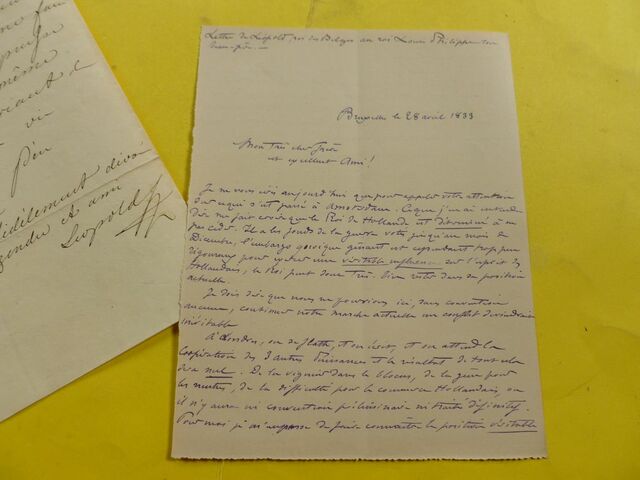 fidèlement dévo
gendre et ami
Léopold
Lettre de Léopold, roi des Belges au roi Louis Philippe son
beau-père.
Bruxelles le 28 avril 1833
Mon très cher
et excellent Ami!
Je ne vous écris aujourd'hui que pour appeler votre attention
sur ce qui s'est passé à Amsterdam. Ce que j'en ai entendu
dire me fait croire que le Roi de Hollande est déterminé à ne
pas céder. Il a les fonds de la guerre votés jusqu'au mois de
Décembre, l'embargo quoique gênant est cependant trop peu
rigoureux pour exercer une véritable influence sur l'esprit des
Hollandais, le Roi peut donc très bien rester dans sa position
actuelle.
Je dois dire que nous ne pourrions ici, sans convention
aucune, continuer notre marche actuelle un conflit deviendrait
inévitable
À Londres, on se flatte, et on croit, et on attend la
Coopération des d'autres Puissances et le résultat de tout cela
sera nul. De la vigueur dans le blocus, de la gêne pour
les neutres, de la difficulté pour le commerce Hollandais, ou
il n'y aura ni convention préliminaire ni traité définitif.
Pour moi je m'empresse de faire connaître la position véritable